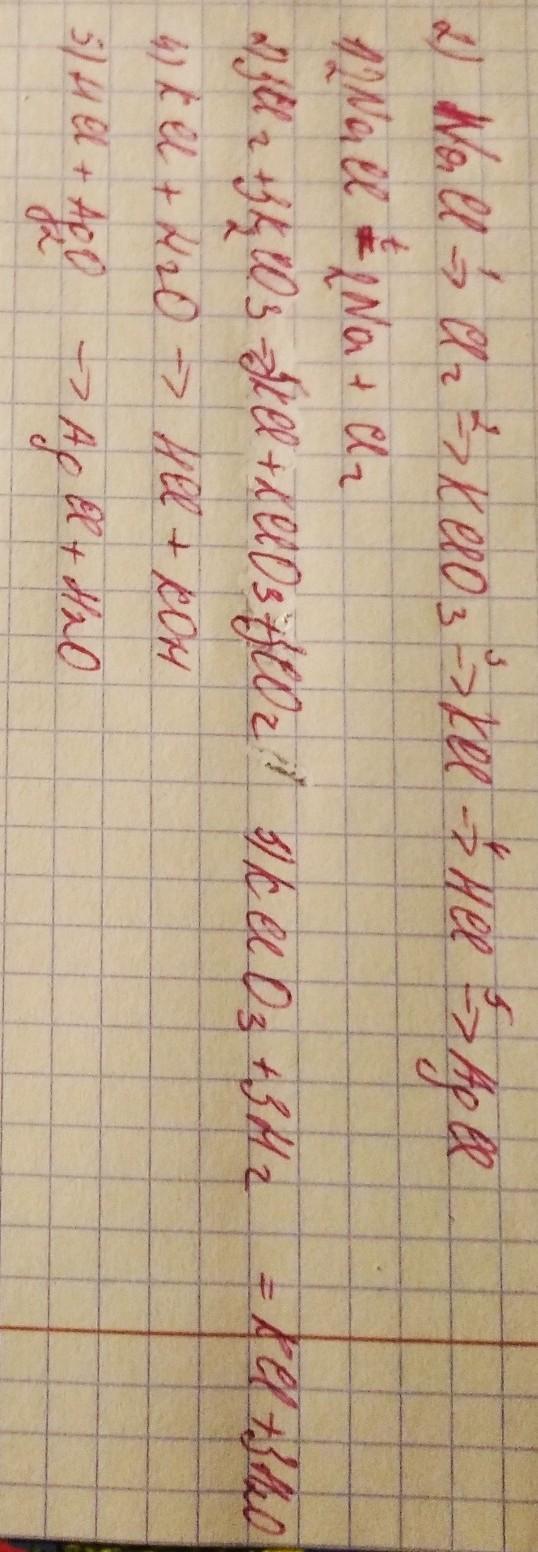 2) NaCl ¹→ Cl₂ ²→ KClO₃ ³→ KCl ⁴→ HCl ⁵→ AgCl
1) 2NaCl =ᵗ 2Na + Cl₂
2) 3Cl₂ + 3K₂CO₃ → 5KCl + KClO₃ + 3CO₂ 3) KClO₃ + 3H₂ = KCl + 3H₂O
4) KCl + H₂O → HCl + KOH
5) HCl + Ag₂O → AgCl + H₂O